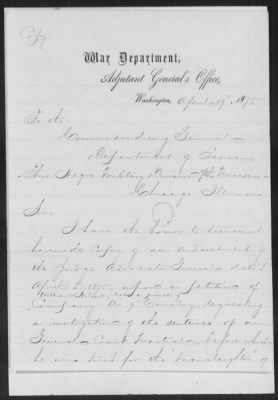 Copy
War Department,
Adjutant General's Office,
Washington, April 19", 1875
To the
Commanding General
Department of Texas
Thro' Hdqrs Military Division of the Missouri
Chicago Illinois
Sir:
I have the honor to transmit
herewith Copy of an endorsement of
the Judge Advocate General dated
April 1875, upon a petition of
late a private of
Company A, 9" Cavalry requesting
a mitigation of the sentence of a
General Court Martial before which
he was tried for the manslaughter of